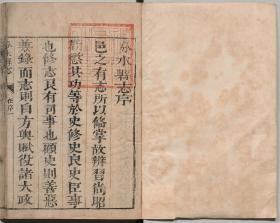 分水縣志序
邑之有志所以備掌故辨習尚昭
勸懲其功等於史修史良史臣事
也修志良有司事也顧史則善惡
兼錄而志則自方輿賦役諸大政